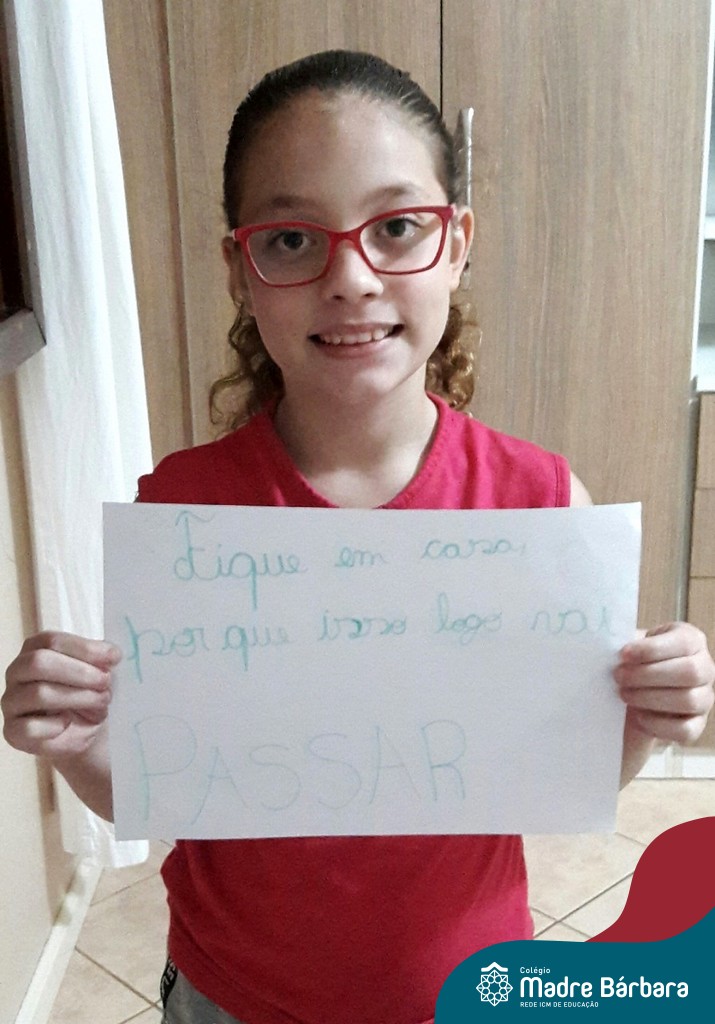 Fique em casa,
porque isso logo vai
PASSAR
Colégio
Madre Bárbara
REDE ICM DE EDUCAÇÃO